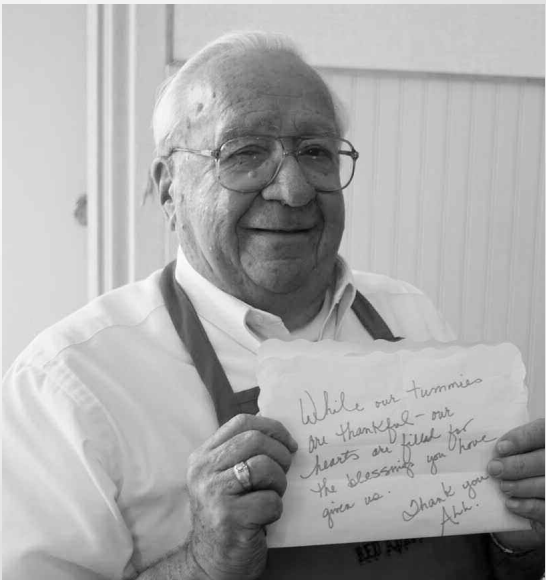 While our tummies
are thankful - our
hearts are filled for
the blessings you have
given us.
Thank you
Ahh!